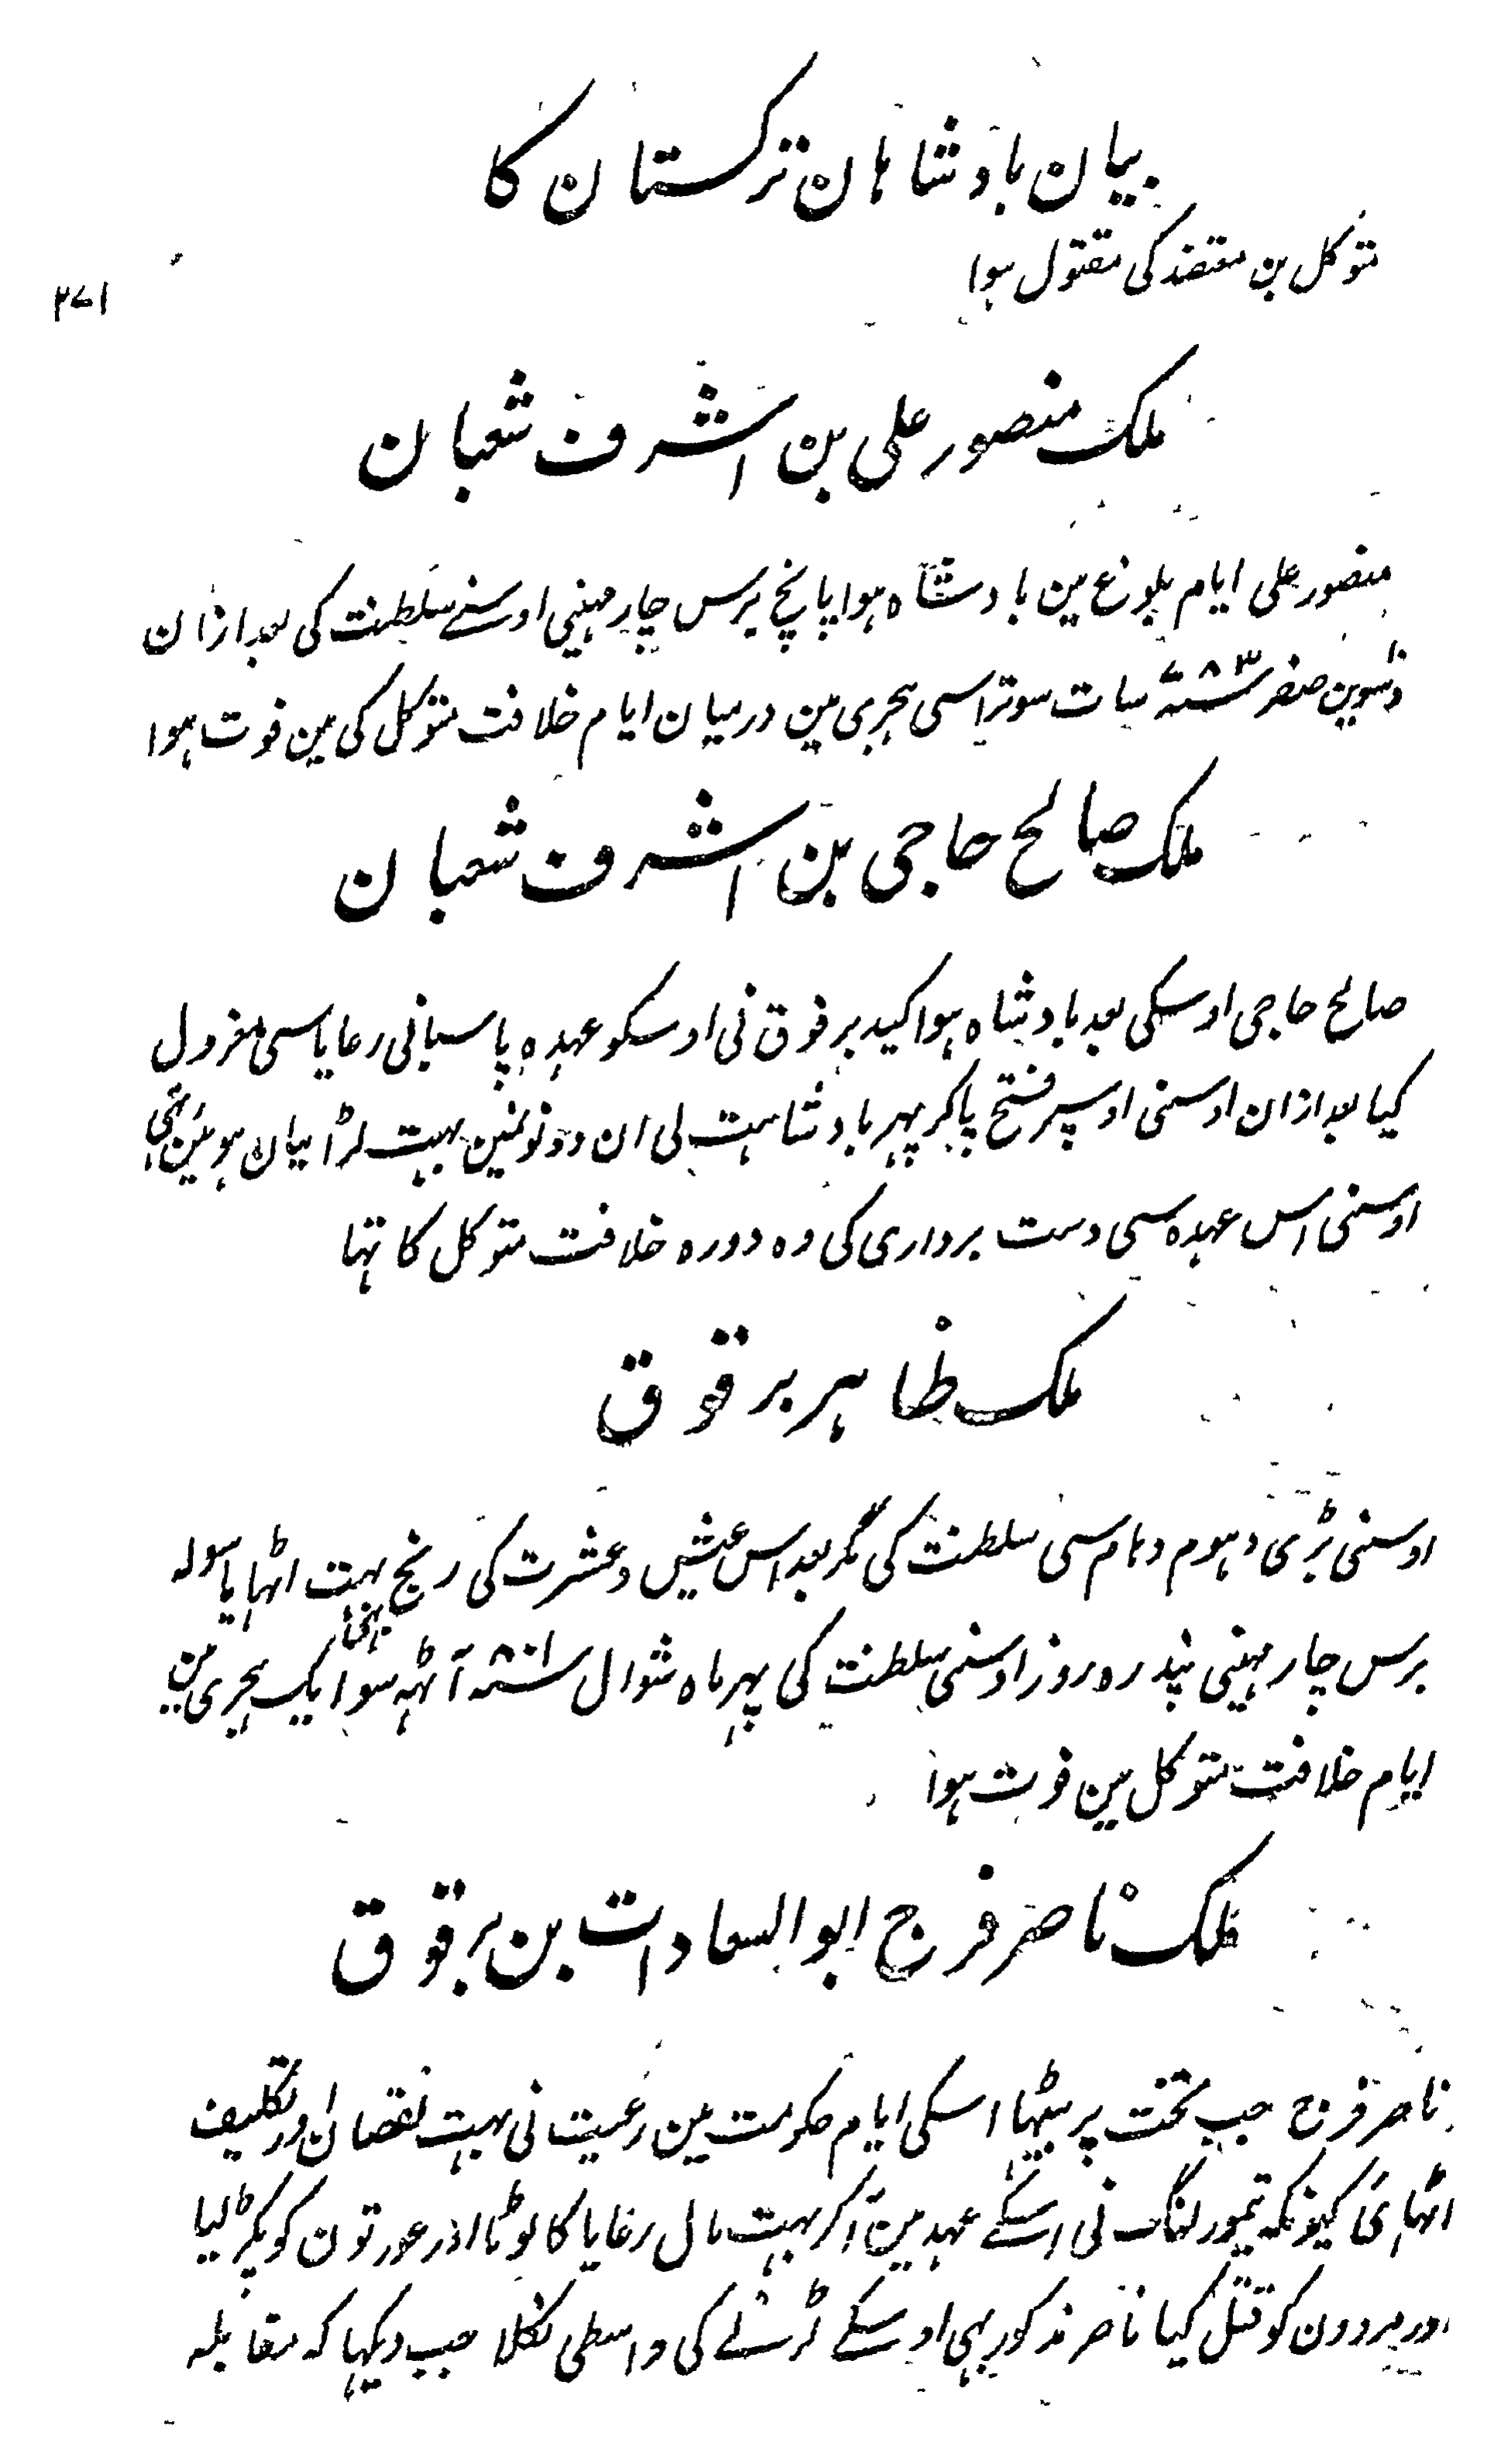 بیان بادشاہان ترکستان کا
متوکل بن معتضد کی مقتول ہوا
۳۷۱
ملک منصور علی بن اشرف شعبان
منصور علی ایام بلوغ مین بادشاہ ہوا پانچ برس چار مہینی اوسنے سلطنت کی بعد ازان
دسوین صفر ۷۸۳؁ سات سو تراسی ہجری مین درمیان ایام خلافت متوکل کی مین فوت ہوا
ملک صالح حاجی بن اشرف شعبان
صالح حاجی اوسکی بعد بادشاہ ہوا کید برقوق نی اوسکو عہدہ پاسبانی رعایا سی معزول
کیا بعد ازان اوسنی اوسپر فتح پاکر پہر بادشاہت لی ان دونونمین بہت لڑائیان ہوئین
اوسنی اس عہدہ سی دست برداری کی وہ دورہ خلافت متوکل کا تہا
ملک ظاہر برقوق
اوسنی بڑی دہوم دہام سی سلطنت کی مگر بعد اس عیش وعشرت کی رنج بہت اٹہایا سولہ
برس چار مہینی پندرہ روز اوسنی سلطنت کی پہر ماہ شوال ۸۰۱؁ آٹہہ سو ایک ہجری مین
ایام خلافت متوکل مین فوت ہوا
ملک ناصر فرج ابو السعادات بن برقوق
ناصر فرج جب تخت پر بیٹہا اسکی ایام حکومت مین رعیت نی بہت نقصان اور تکلیف
اٹہائی کیونکہ تیمور لنگ نی اسکے عہد مین آکر بہت مال رعایا کا لوٹا اور عورتون کو پکڑ لیا
اور مردون کو قتل کیا ناصر مذکور بہی اوسکے لڑنے کی واسطی نکلا جب دیکہا کہ مقابلہ